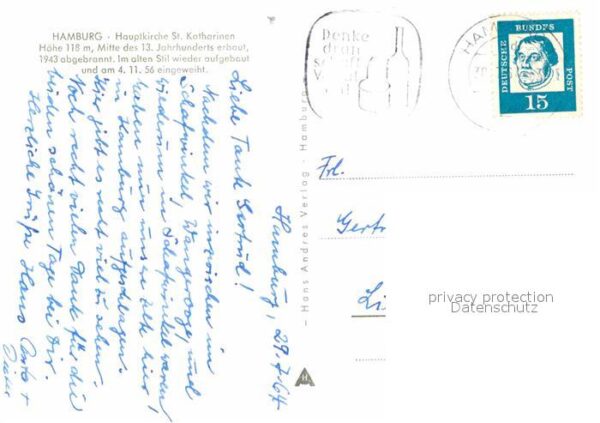 HAMBURG · Hauptkirche St. Katharinen
Höhe 118 m, Mitte des 13. Jahrhunderts erbaut,
1943 abgebrannt. Im alten Stil wieder aufgebaut
und am 4. 11. 56 eingeweiht.
Hamburg, 29.7.64
Liebe Tante Gertrud!
Nachdem wir inzwischen in
Schafwinkel, Wangerooge, und
wiederum in Schafwinkel waren,
haben wir unsere Zelte hier
in Hamburg aufgeschlagen.
Hier gibt es recht viel zu sehen.
Noch recht vielen Dank für die
beiden schönen Tage bei Dir.
Herzliche Grüße Hans
– Hans Andres Verlag · Hamburg
Denke
dran
HAM
DEUTSCHE BUNDESPOST
15
Frl.
Gertr
Li
privacy protection
Datenschutz